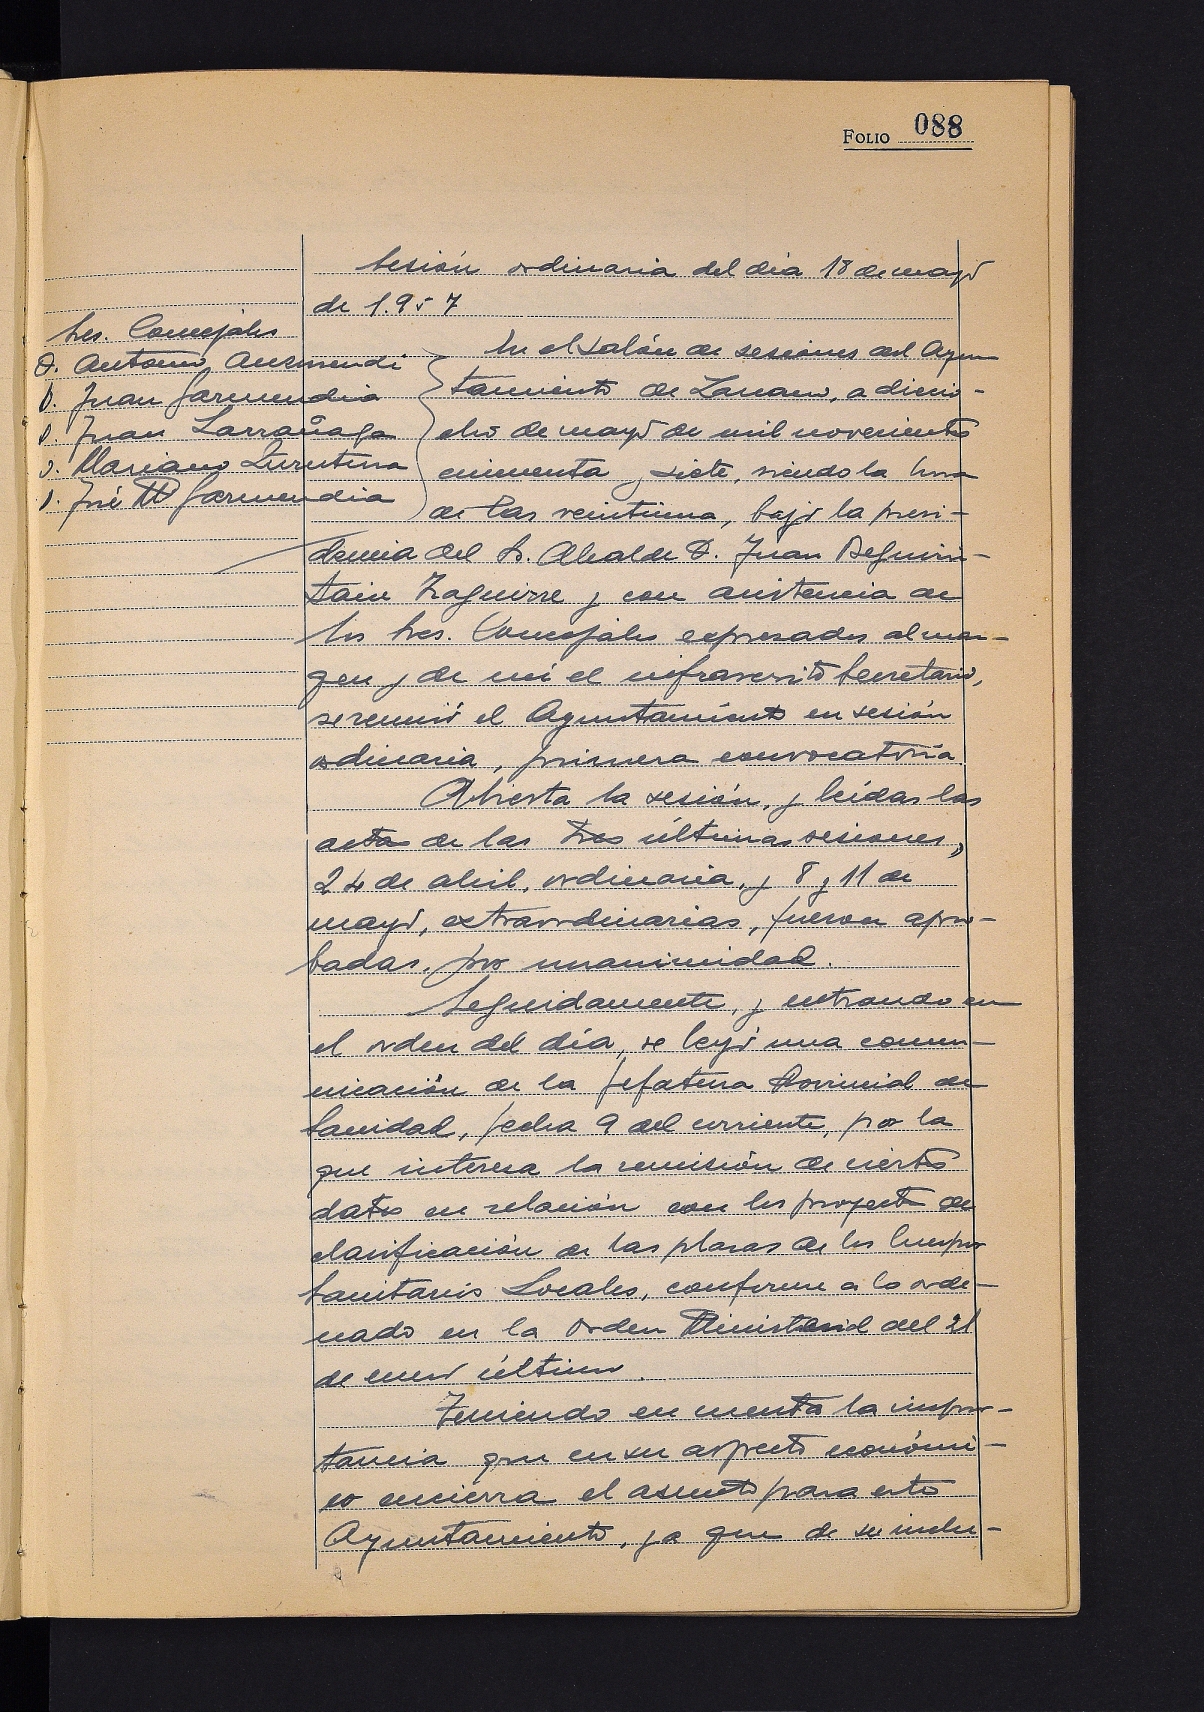 FOLIO 088
Sesión ordinaria del dia 18 de mayo
de 1.957
Sres. Concejales
D. Antonio Aurmendi
D. Juan Garmendia
D. Juan Larrañaga
D. Mariano Zurutuza
D. José Mª Garmendia
En el Salón de sesiones del Ayun
tamiento de Zarauz, a diecio-
cho de mayo de mil novecientos
cincuenta y siete, siendo la hora
de las veintiuna, bajo la presi-
dencia del Sr. Alcalde D. Juan Beguiris-
tain Izaguirre y con asistencia de
los Sres. Concejales expresados al mar-
gen y de mi el infrascrito Secretario,
se reunió el Ayuntamiento en sesión
ordinaria, primera convocatoria.
Abierta la sesión, y leídas las
actas de las tres últimas sesiones,
24 de abril, ordinaria, y 8 y 11 de
mayo, extraordinarias, fueron apro-
badas, por unanimidad.
Seguidamente, y entrando en
el orden del día, se leyó una comu-
nicación de la Jefatura Provincial de
Sanidad, fecha 9 del corriente, por la
que interesa la remisión de ciertos
datos en relación con los proyectos de
clasificación de las plazas de los Cuerpos
Sanitarios Locales, conforme a lo orde-
nado en la Orden Ministerial del 21
de enero último.
Teniendo en cuenta la impor-
tancia que en su aspecto económi-
co encierra el asunto para este
Ayuntamiento, ya que de su inclu-